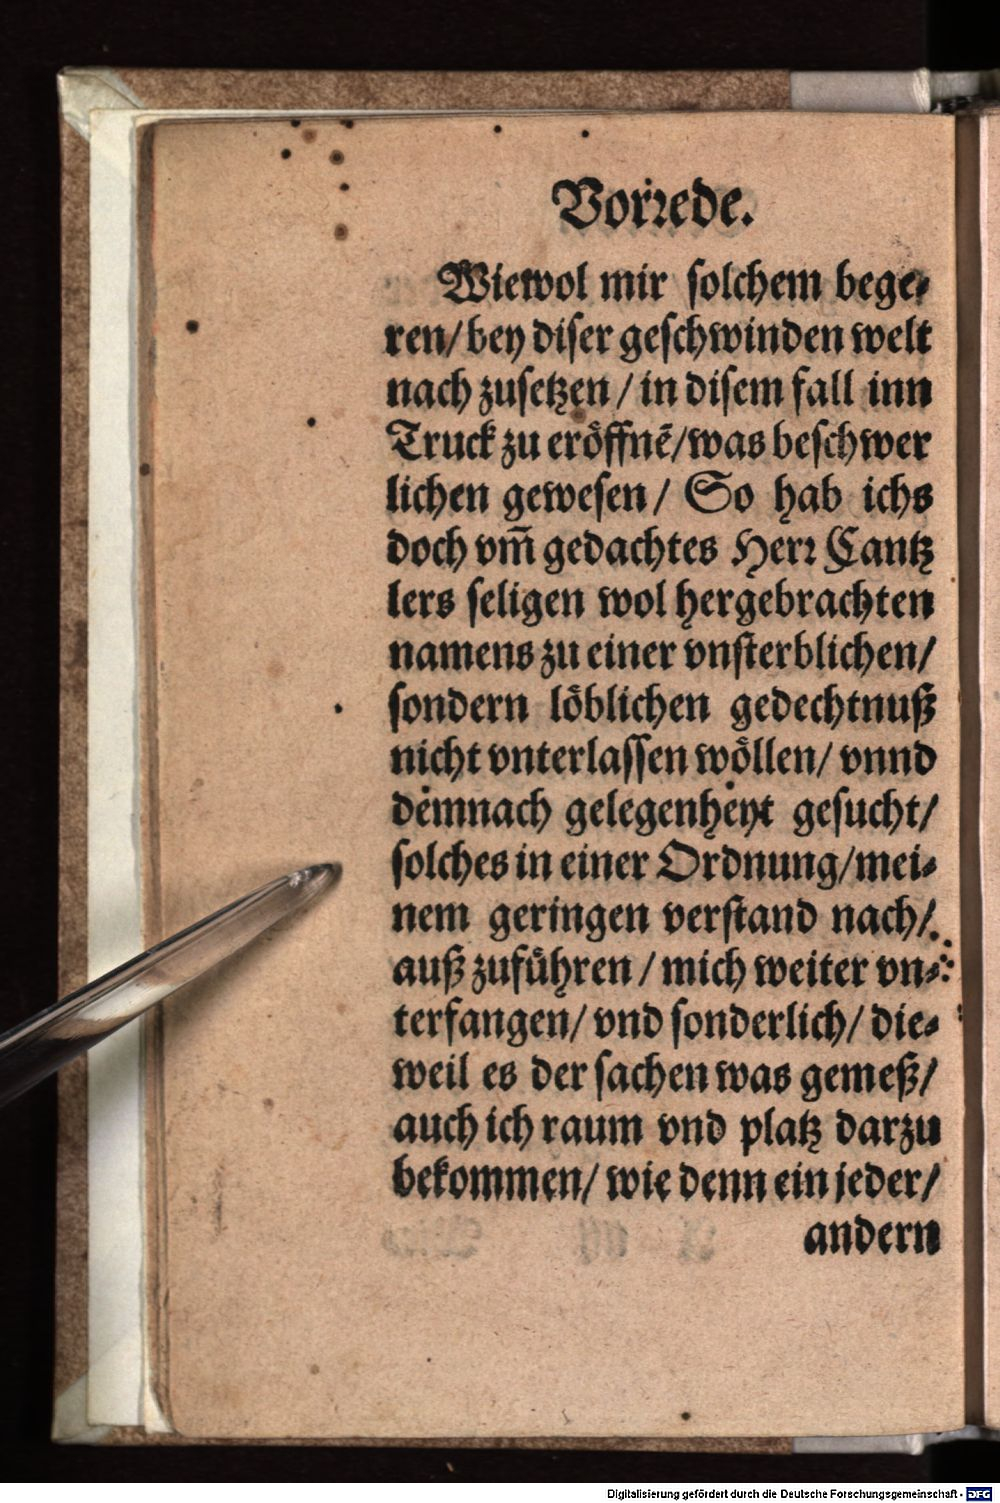 Vorꝛede.
Wiewol mir solchem bege⸗
ren/ bey diser geschwinden welt
nach zusetzen / in disem fall inn
Truck zu eröffnē/ was beschwer
lichen gewesen / So hab ichs
doch vm̄ gedachtes Herꝛ Cantz
lers seligen wol hergebrachten
namens zu einer vnsterblichen/
sondern löblichen gedechtnuß
nicht vnterlassen wöllen/ vnnd
demnach gelegenheyt gesucht/
solches in einer Ordnung/ mei⸗
nem geringen verstand nach/
auß zuführen / mich weiter vn⸗
terfangen/ vnd sonderlich/ die⸗
weil es der sachen was gemeß/
auch ich raum vnd platz darzu
bekommen/ wie denn ein jeder/
andern
Digitalisierung gefördert durch die Deutsche Forschungsgemeinschaft - DFG